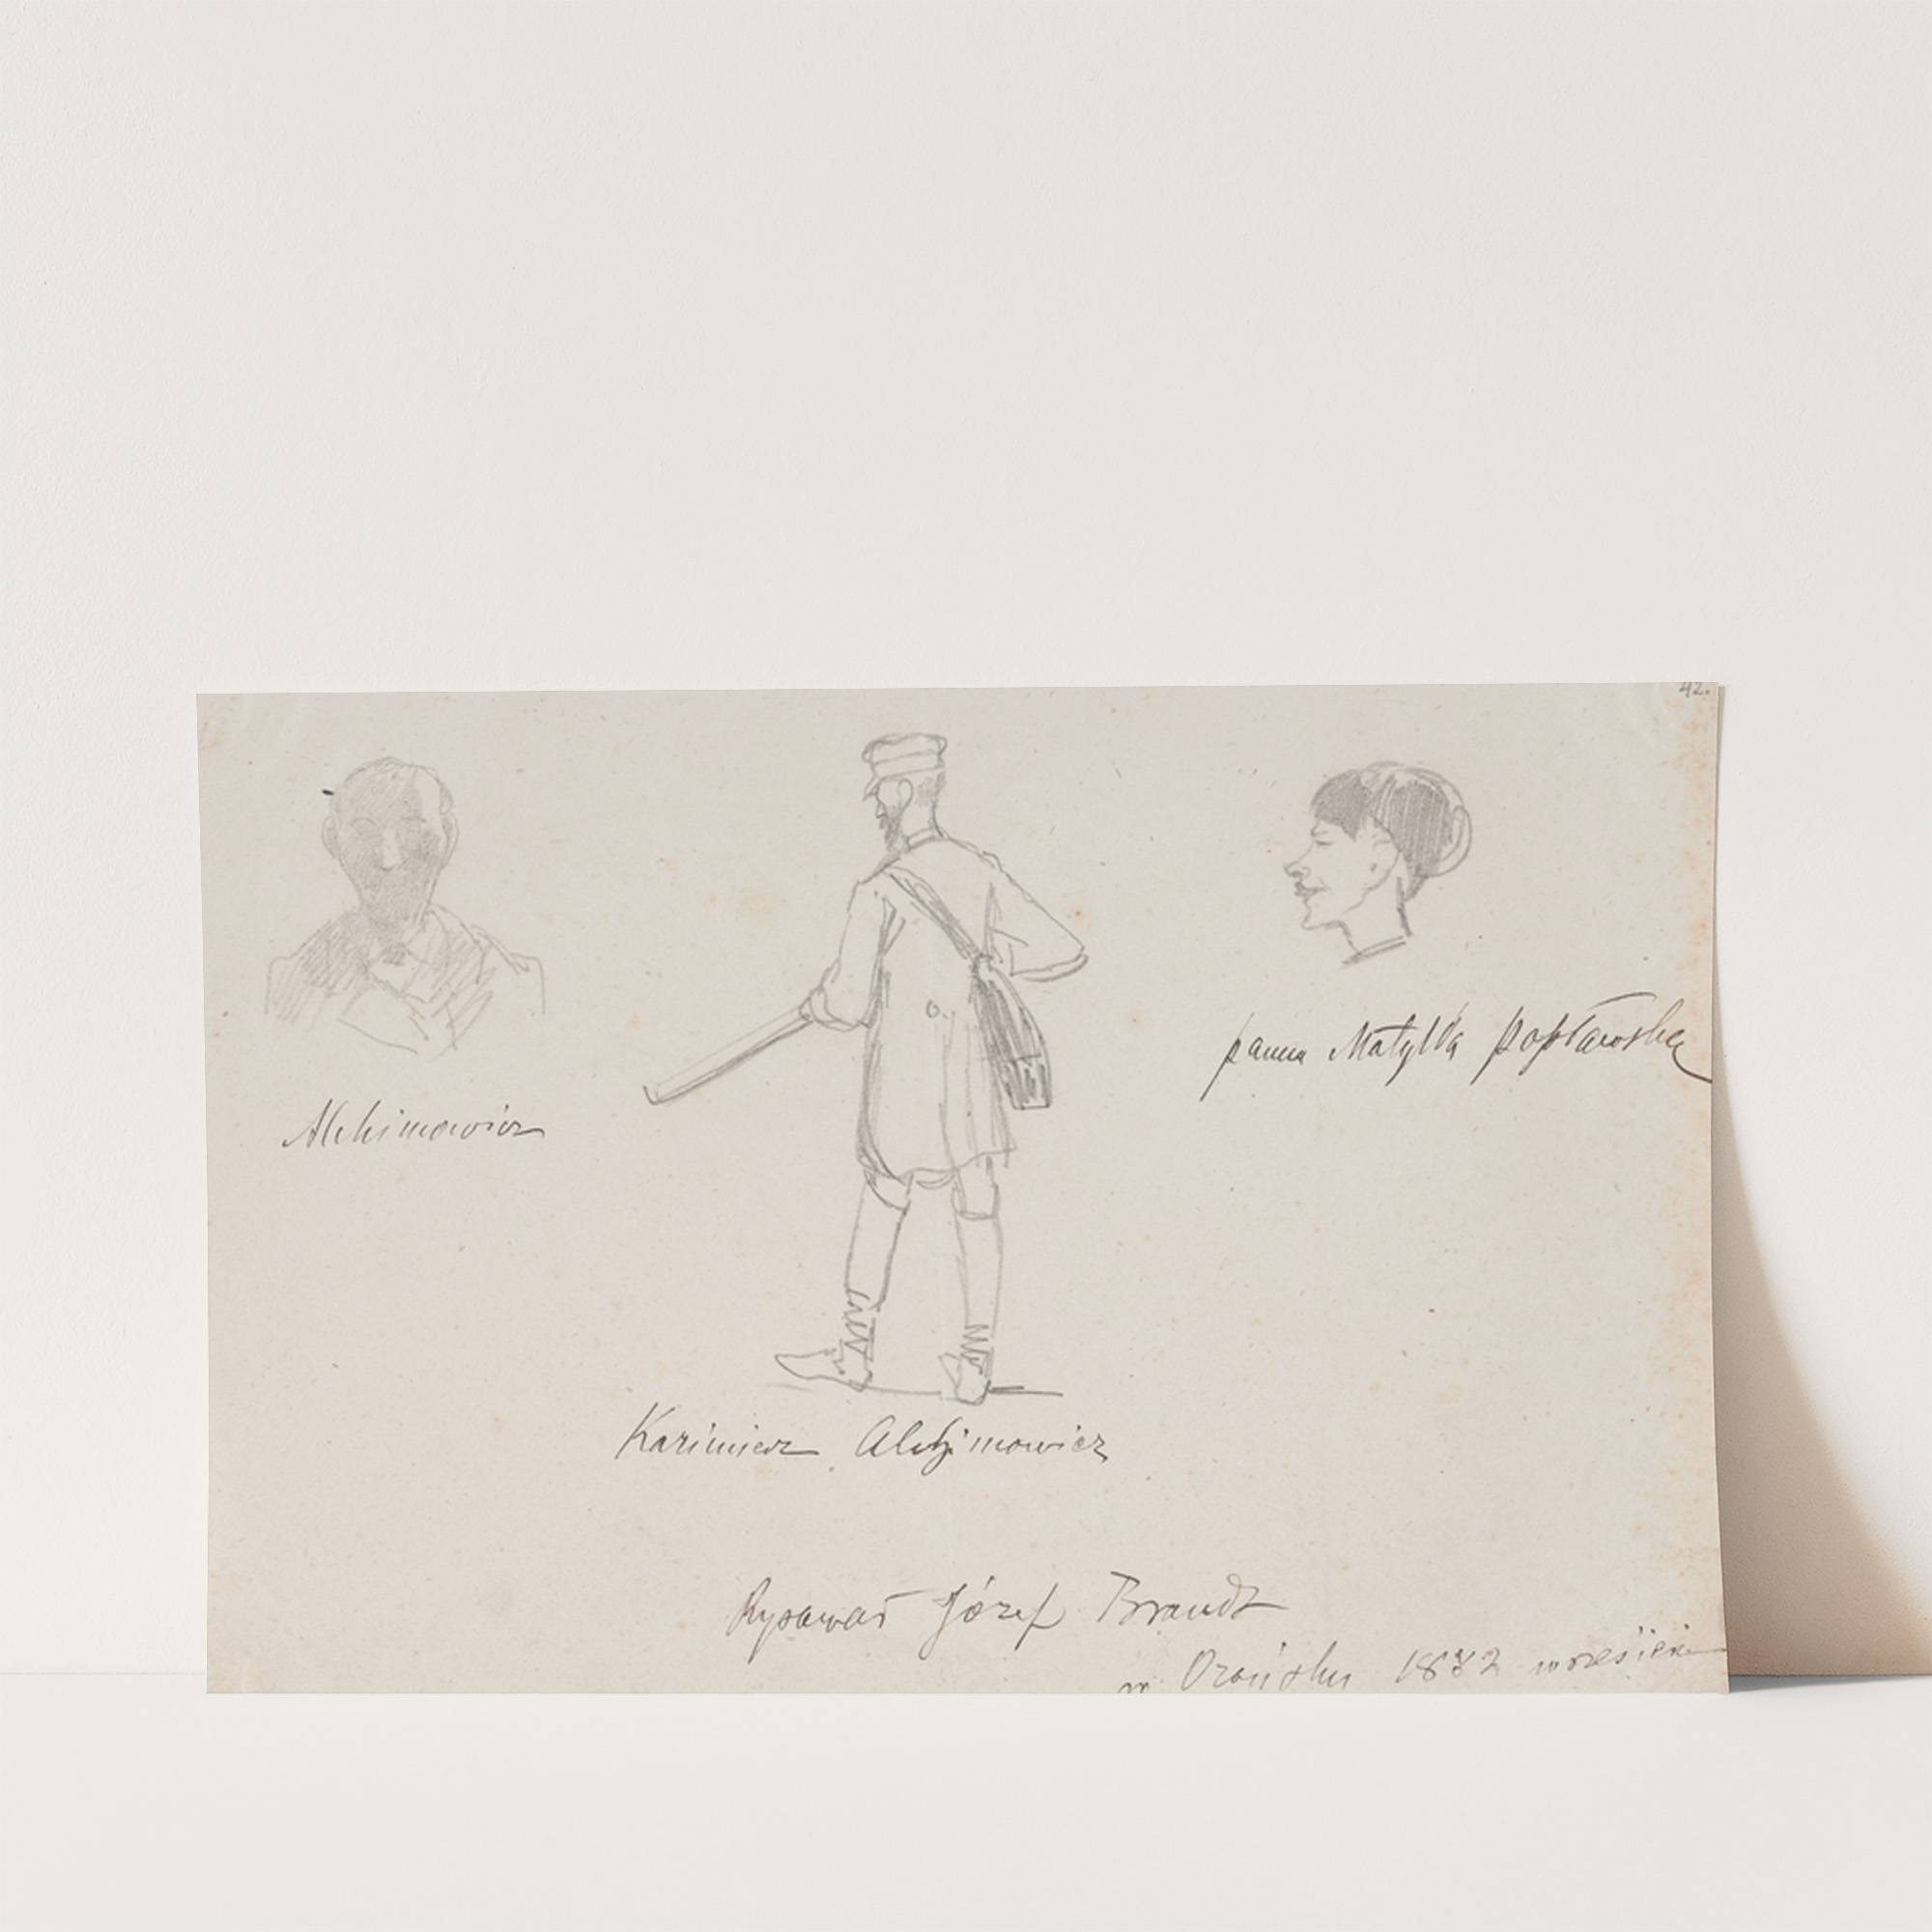 42.
panna Matylda Popławska
Alchimowicz
Kazimierz Alchimowicz
Rysował Józef Brandt
w Orońsku 1882 wrzesień